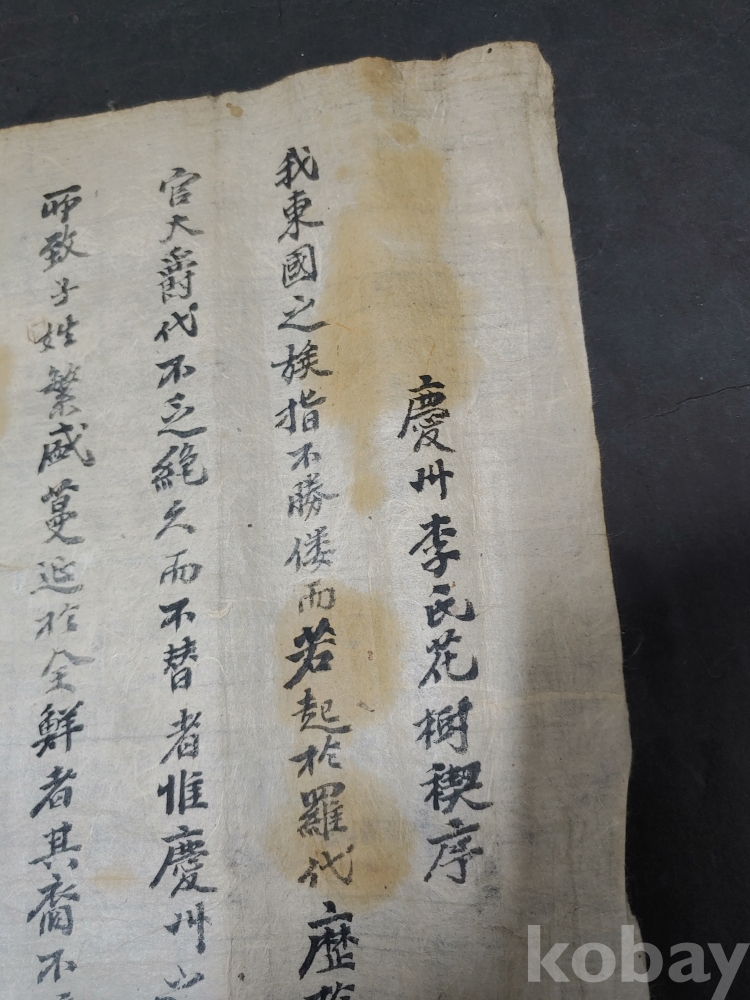 慶州李氏花樹稧序
我東國之族指不勝僂而若起於羅代歷
官大爵代不乏絶久而不替者惟慶州
所致子姓繁盛蔓延於全鮮者其裔不
kobay